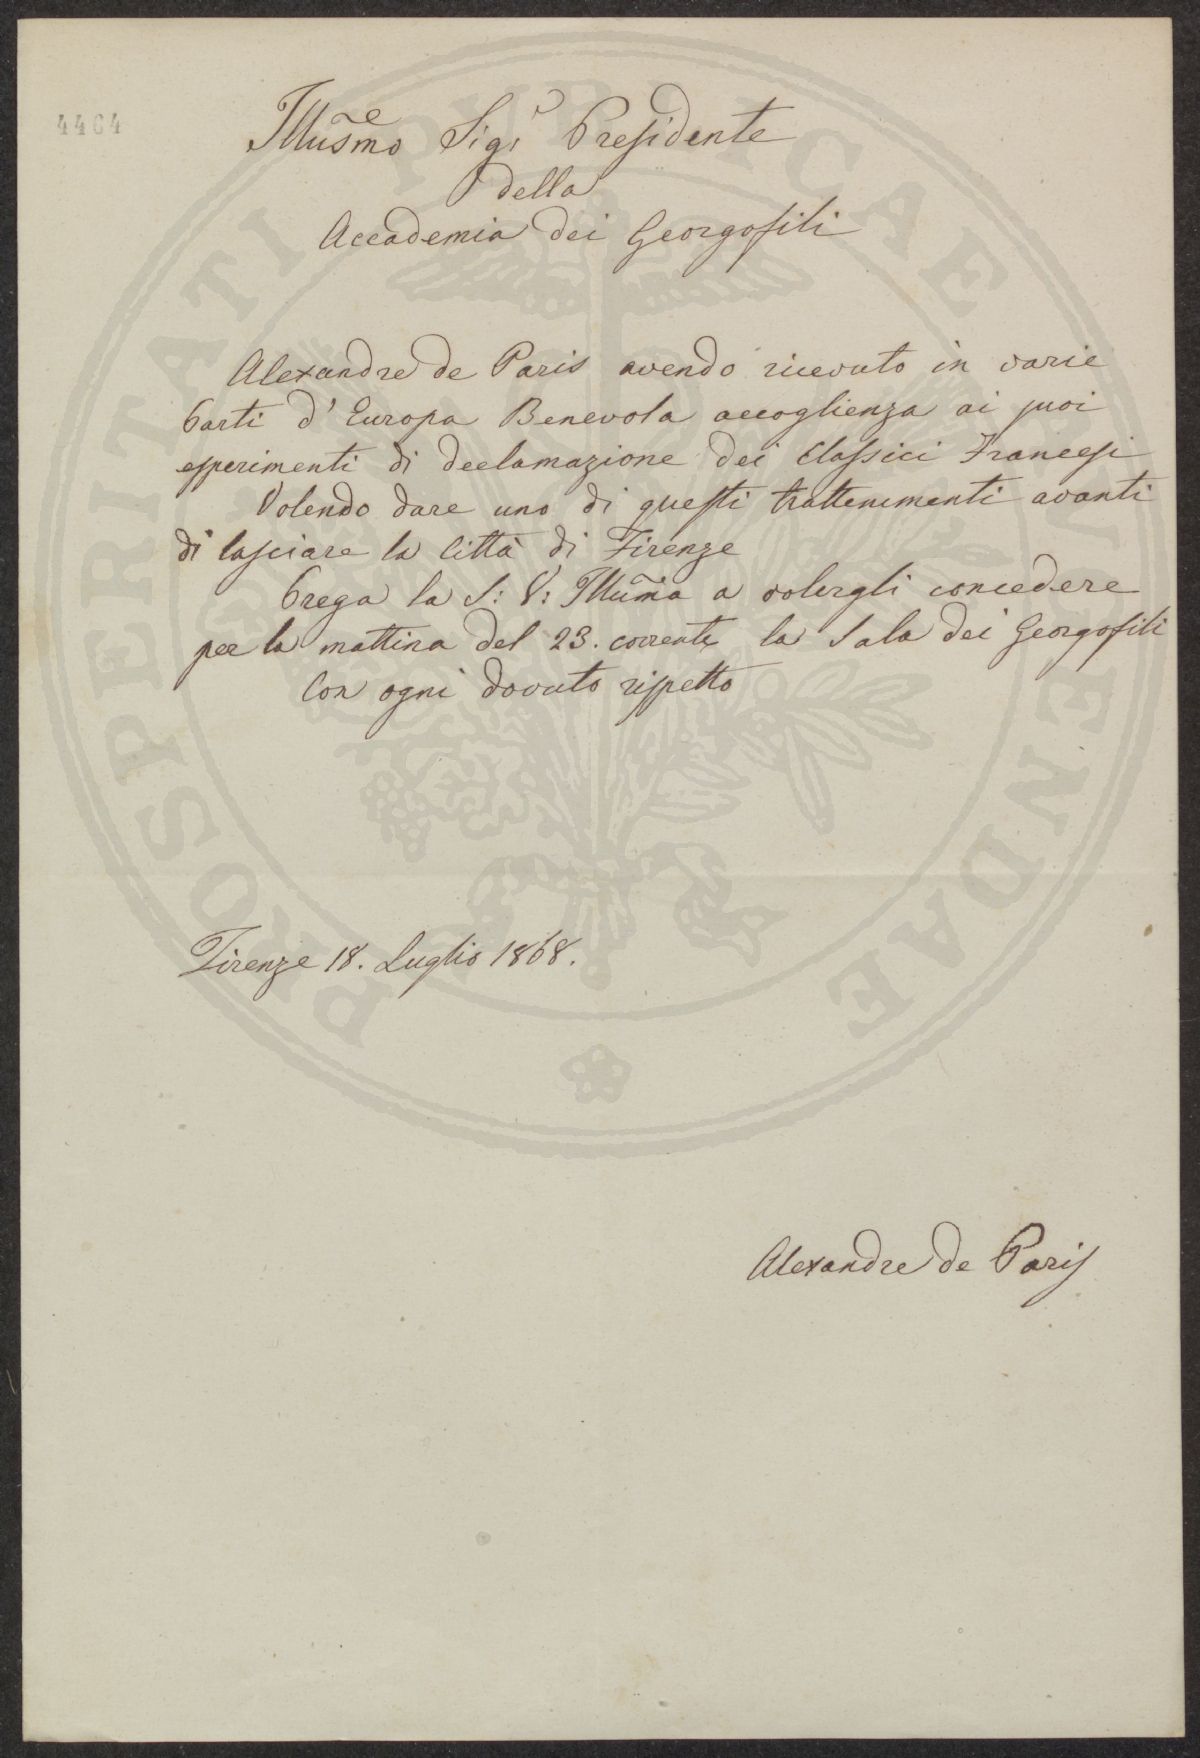 4464
Illusmo Sigr Presidente
della
Accademia dei Georgofili
Alexandre de Paris avendo ricevuto in varie
Parti d'Europa Benevola accoglienza ai suoi
esperimenti di declamazione dei Classici Francesi
Volendo dare uno di questi trattenimenti avanti
di lasciare la Città di Firenze
Prega la S: V: Illuma a volergli concedere
per la mattina del 23. corrente la Sala dei Georgofili
Con ogni dovuto rispetto
Firenze 18. Luglio 1868.
Alexandre de Paris
PROSPERITATI PUBLICAE AUGENDAE